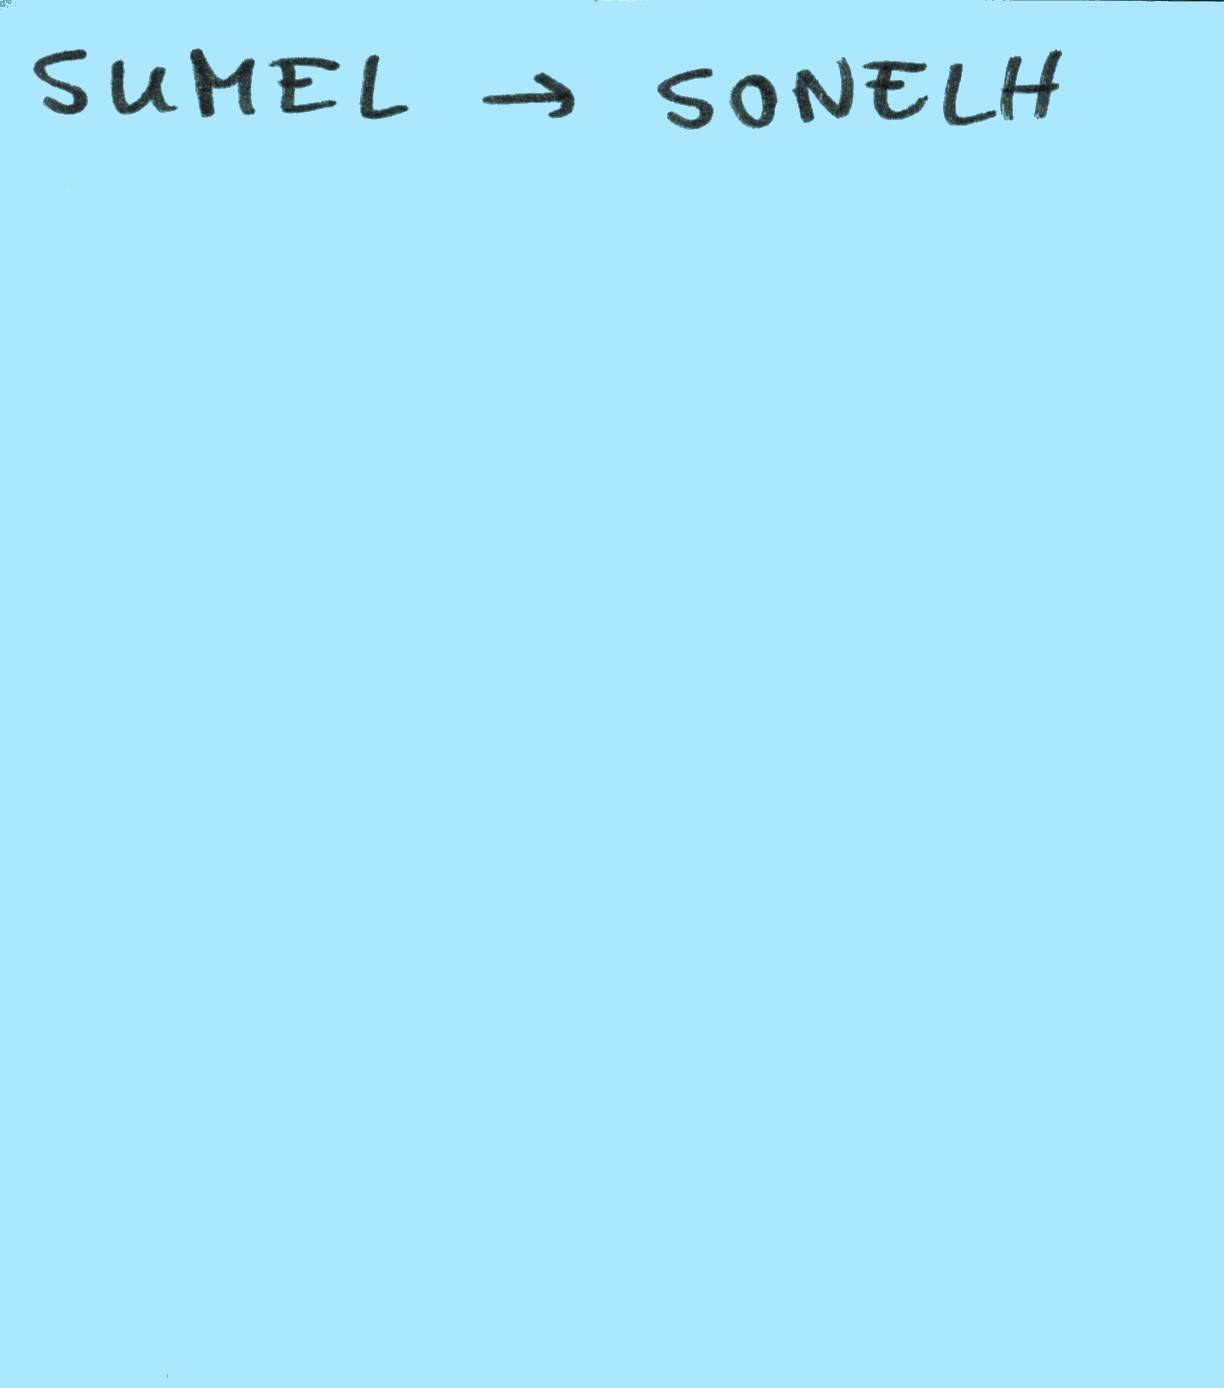 SUMEL → SONELH